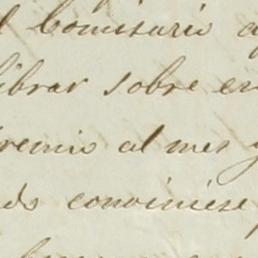 l Comisario a
librar sobre en
premio al mes y
ado conviniese